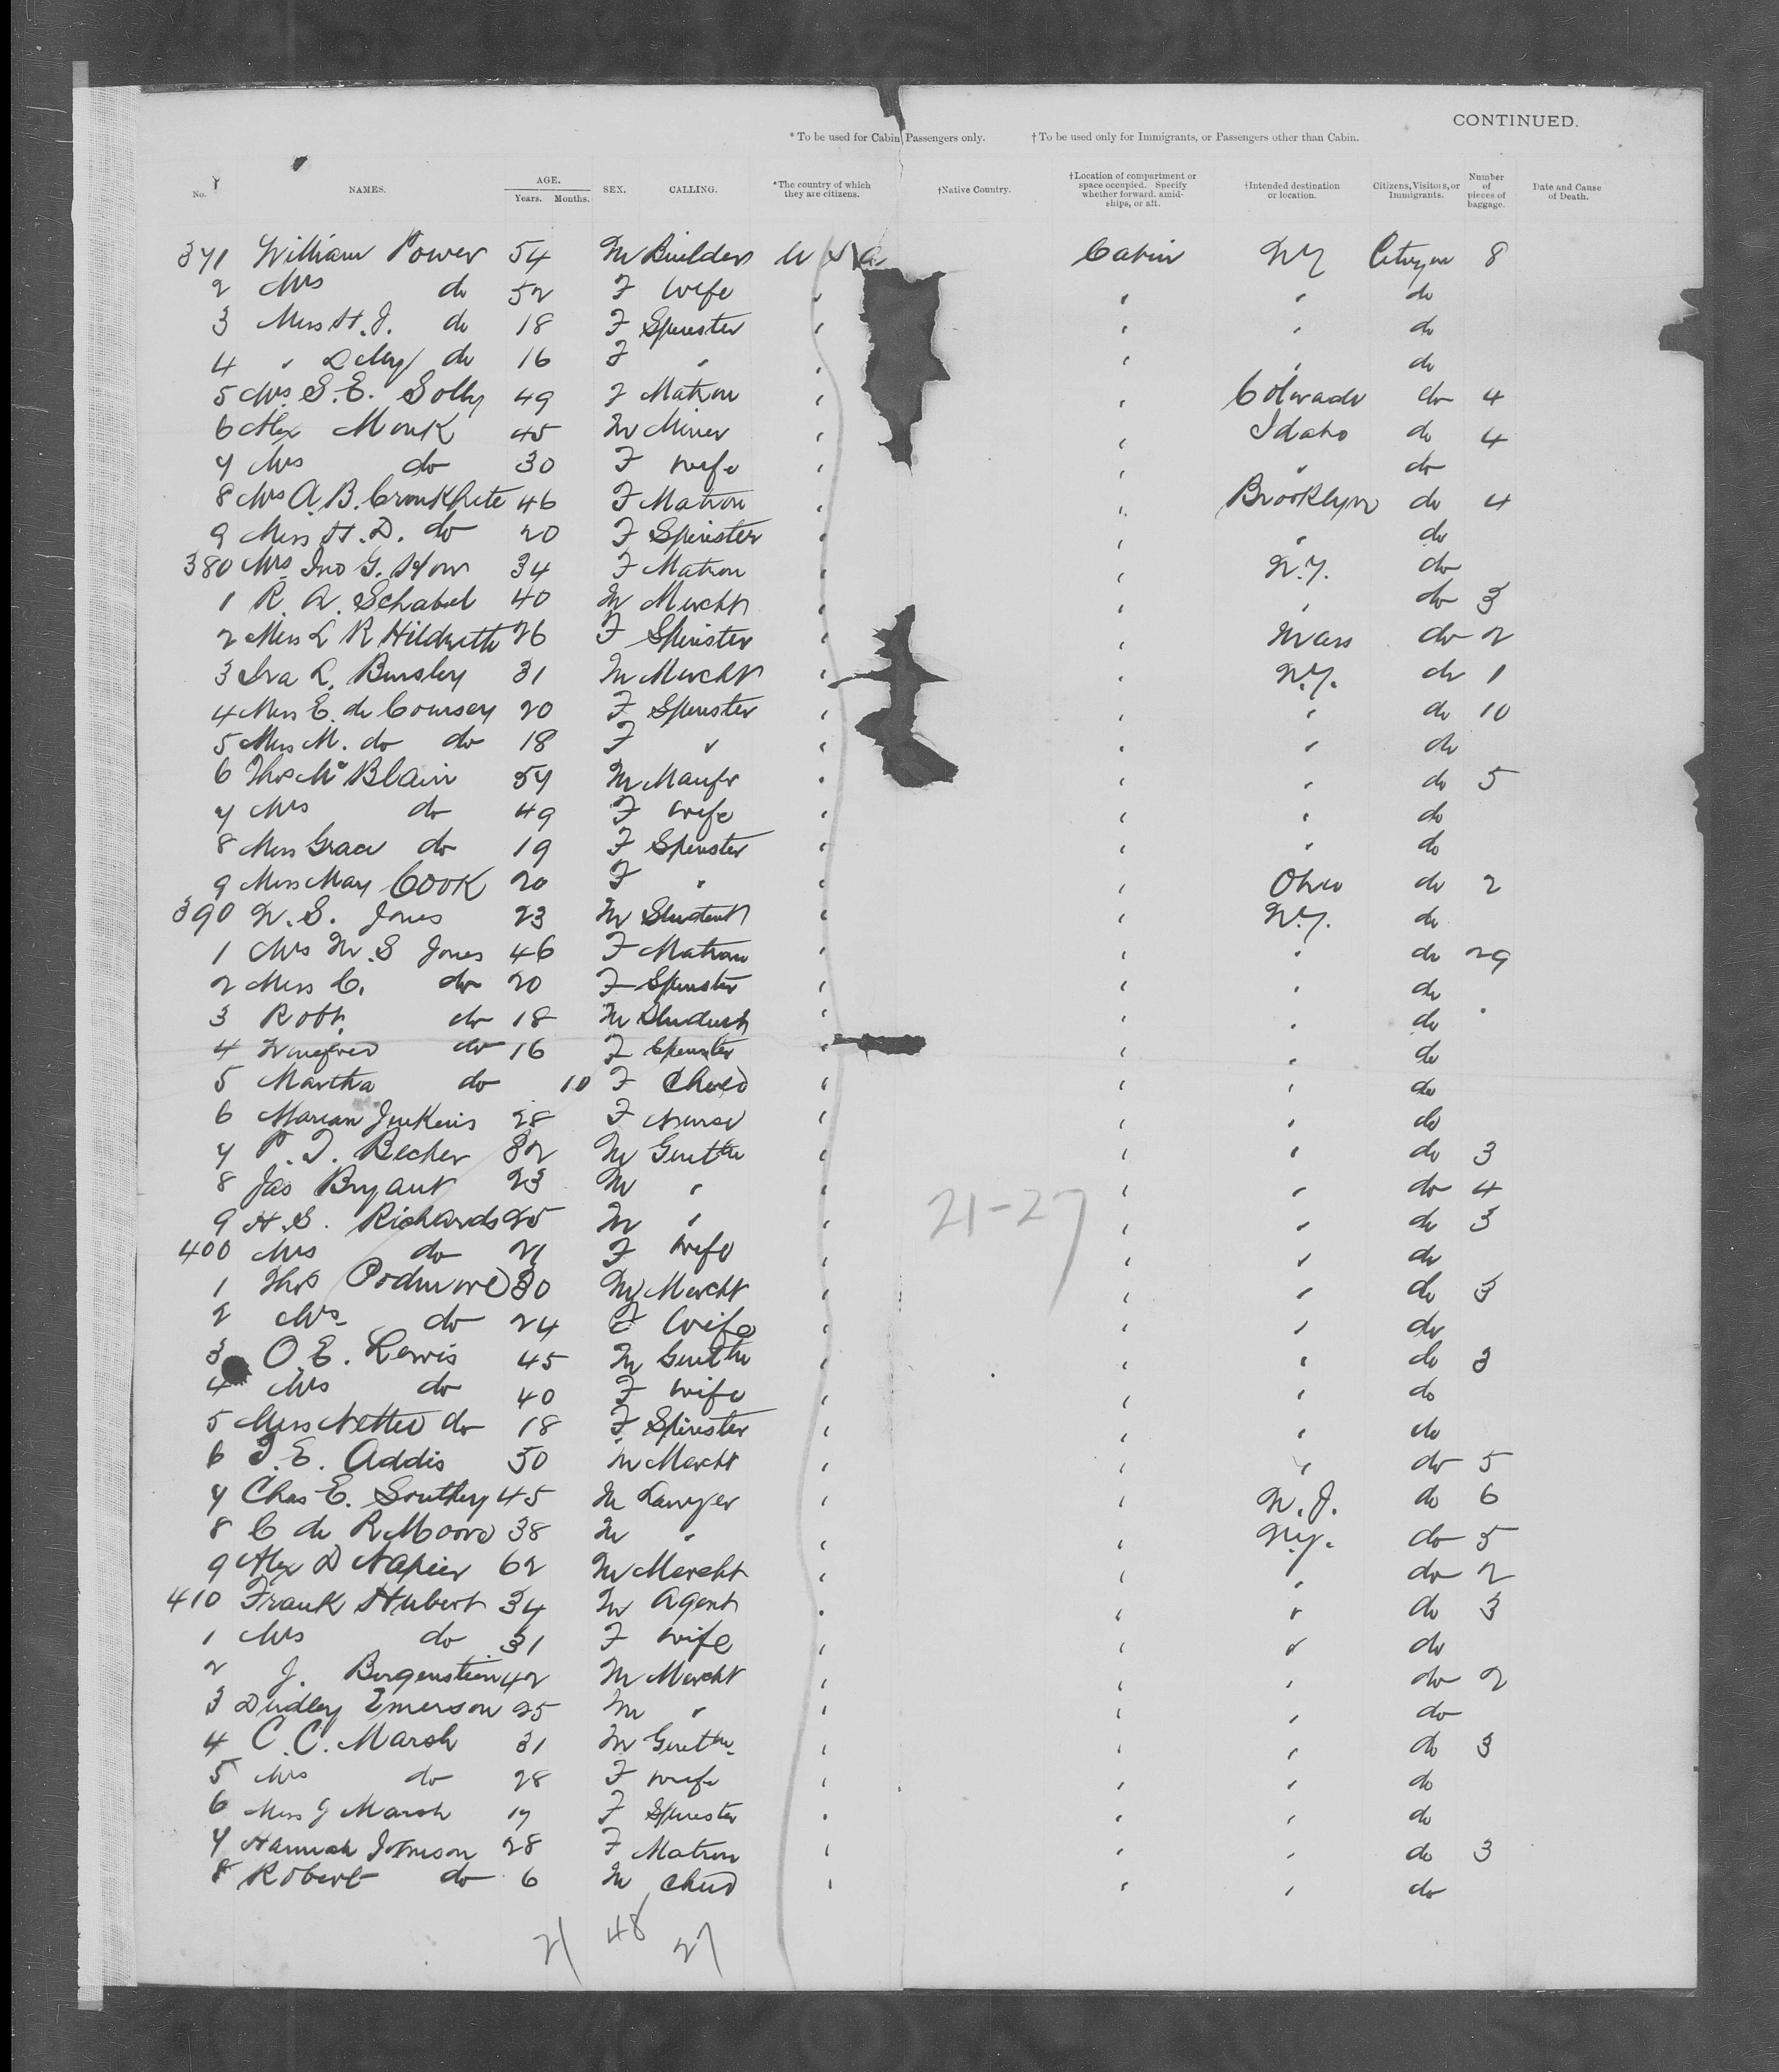 CONTINUED.
* To be used for Cabin Passengers only. † To be used only for Immigrants, or Passengers other than Cabin.
No. NAMES. AGE. Years. Months. SEX. CALLING. *The country of which they are citizens. †Native Country. †Location of compartment or space occupied. Specify whether forward, amidships, or aft. †Intended destination or location. Citizens, Visitors, or Immigrants. Number of pieces of baggage. Date and Cause of Death.
371 William Power 54 M Builder U S A Cabin NY Citizen 8
2 Mrs do 52 F Wife " " " do
3 Miss H. J. do 18 F Spinster " " " do
4 " do 16 F " " " " do
5 Mrs S. E. Solly 49 F Matron " " Colorado do 4
6 Alex Monk 45 M Miner " " Idaho do 4
7 Mrs do 30 F Wife " " " do
8 Mrs A. B. Cronkhite 46 F Matron " " Brooklyn do 4
9 Miss H. D. do 20 F Spinster " " " do
380 Mrs Jno G. How 34 F Matron " " N.Y. do
1 R. A. Schabel 40 M Mercht " " " do 3
2 Miss L R Hildreth 26 F Spinster " " Mass do 2
3 Ira L. Bursley 31 M Mercht " " N.Y. do 1
4 Miss E. de Coursey 20 F Spinster " " " do 10
5 Miss M. do do 18 F " " " " do
6 Thos Mc Blain 57 M Manfr " " " do 5
7 Mrs do 49 F Wife " " " do
8 Miss Grace do 19 F Spinster " " " do
9 Miss May Cook 20 F " " " Ohio do 2
390 W. S. Jones 23 M Student " " N.Y. do
1 Mrs W. S Jones 46 F Matron " " " do 29
2 Miss C. do 20 F Spinster " " " do
3 Robt. do 18 M Student " " " do "
4 Winefred do 16 F Spinster " " " do
5 Martha do 10 F Child " " " do
6 Marian Jenkins 28 F Nurse " " " do
7 P. T. Becher 32 M Gentln " " " do 3
8 Jas Bryant 23 M " " " " do 4
9 H. S. Richards 25 M " " " " do 3
400 Mrs do 21 F Wife " " " do
21-27
1 Thos Podmore 30 M Mercht " " " do 3
2 Mrs do 24 F Wife " " " do
3 O. E. Lewis 45 M Gentln " " " do 3
4 Mrs do 40 F Wife " " " do
5 Miss Nettie do 18 F Spinster " " " do
6 T. E. Addis 50 M Mercht " " " do 5
7 Chas E. Southey 45 M Lawyer " " N.J. do 6
8 C de R Moore 38 M " " " N.Y. do 5
9 Alex D Napier 62 M Mercht " " " do 2
410 Frank Hubert 34 M Agent " " " do 3
1 Mrs do 31 F Wife " " " do
2 J. Bergenstein 42 M Mercht " " " do 2
3 Dudley Emerson 25 M " " " " do
4 C. C. Marsh 31 M Gentln. " " " do 3
5 Mrs do 28 F Wife " " " do
6 Miss G Marsh 17 F Spinster " " " do
7 Hannah Johnson 28 F Matron " " " do 3
8 Robert do 6 M Child " " " do
21 48 27